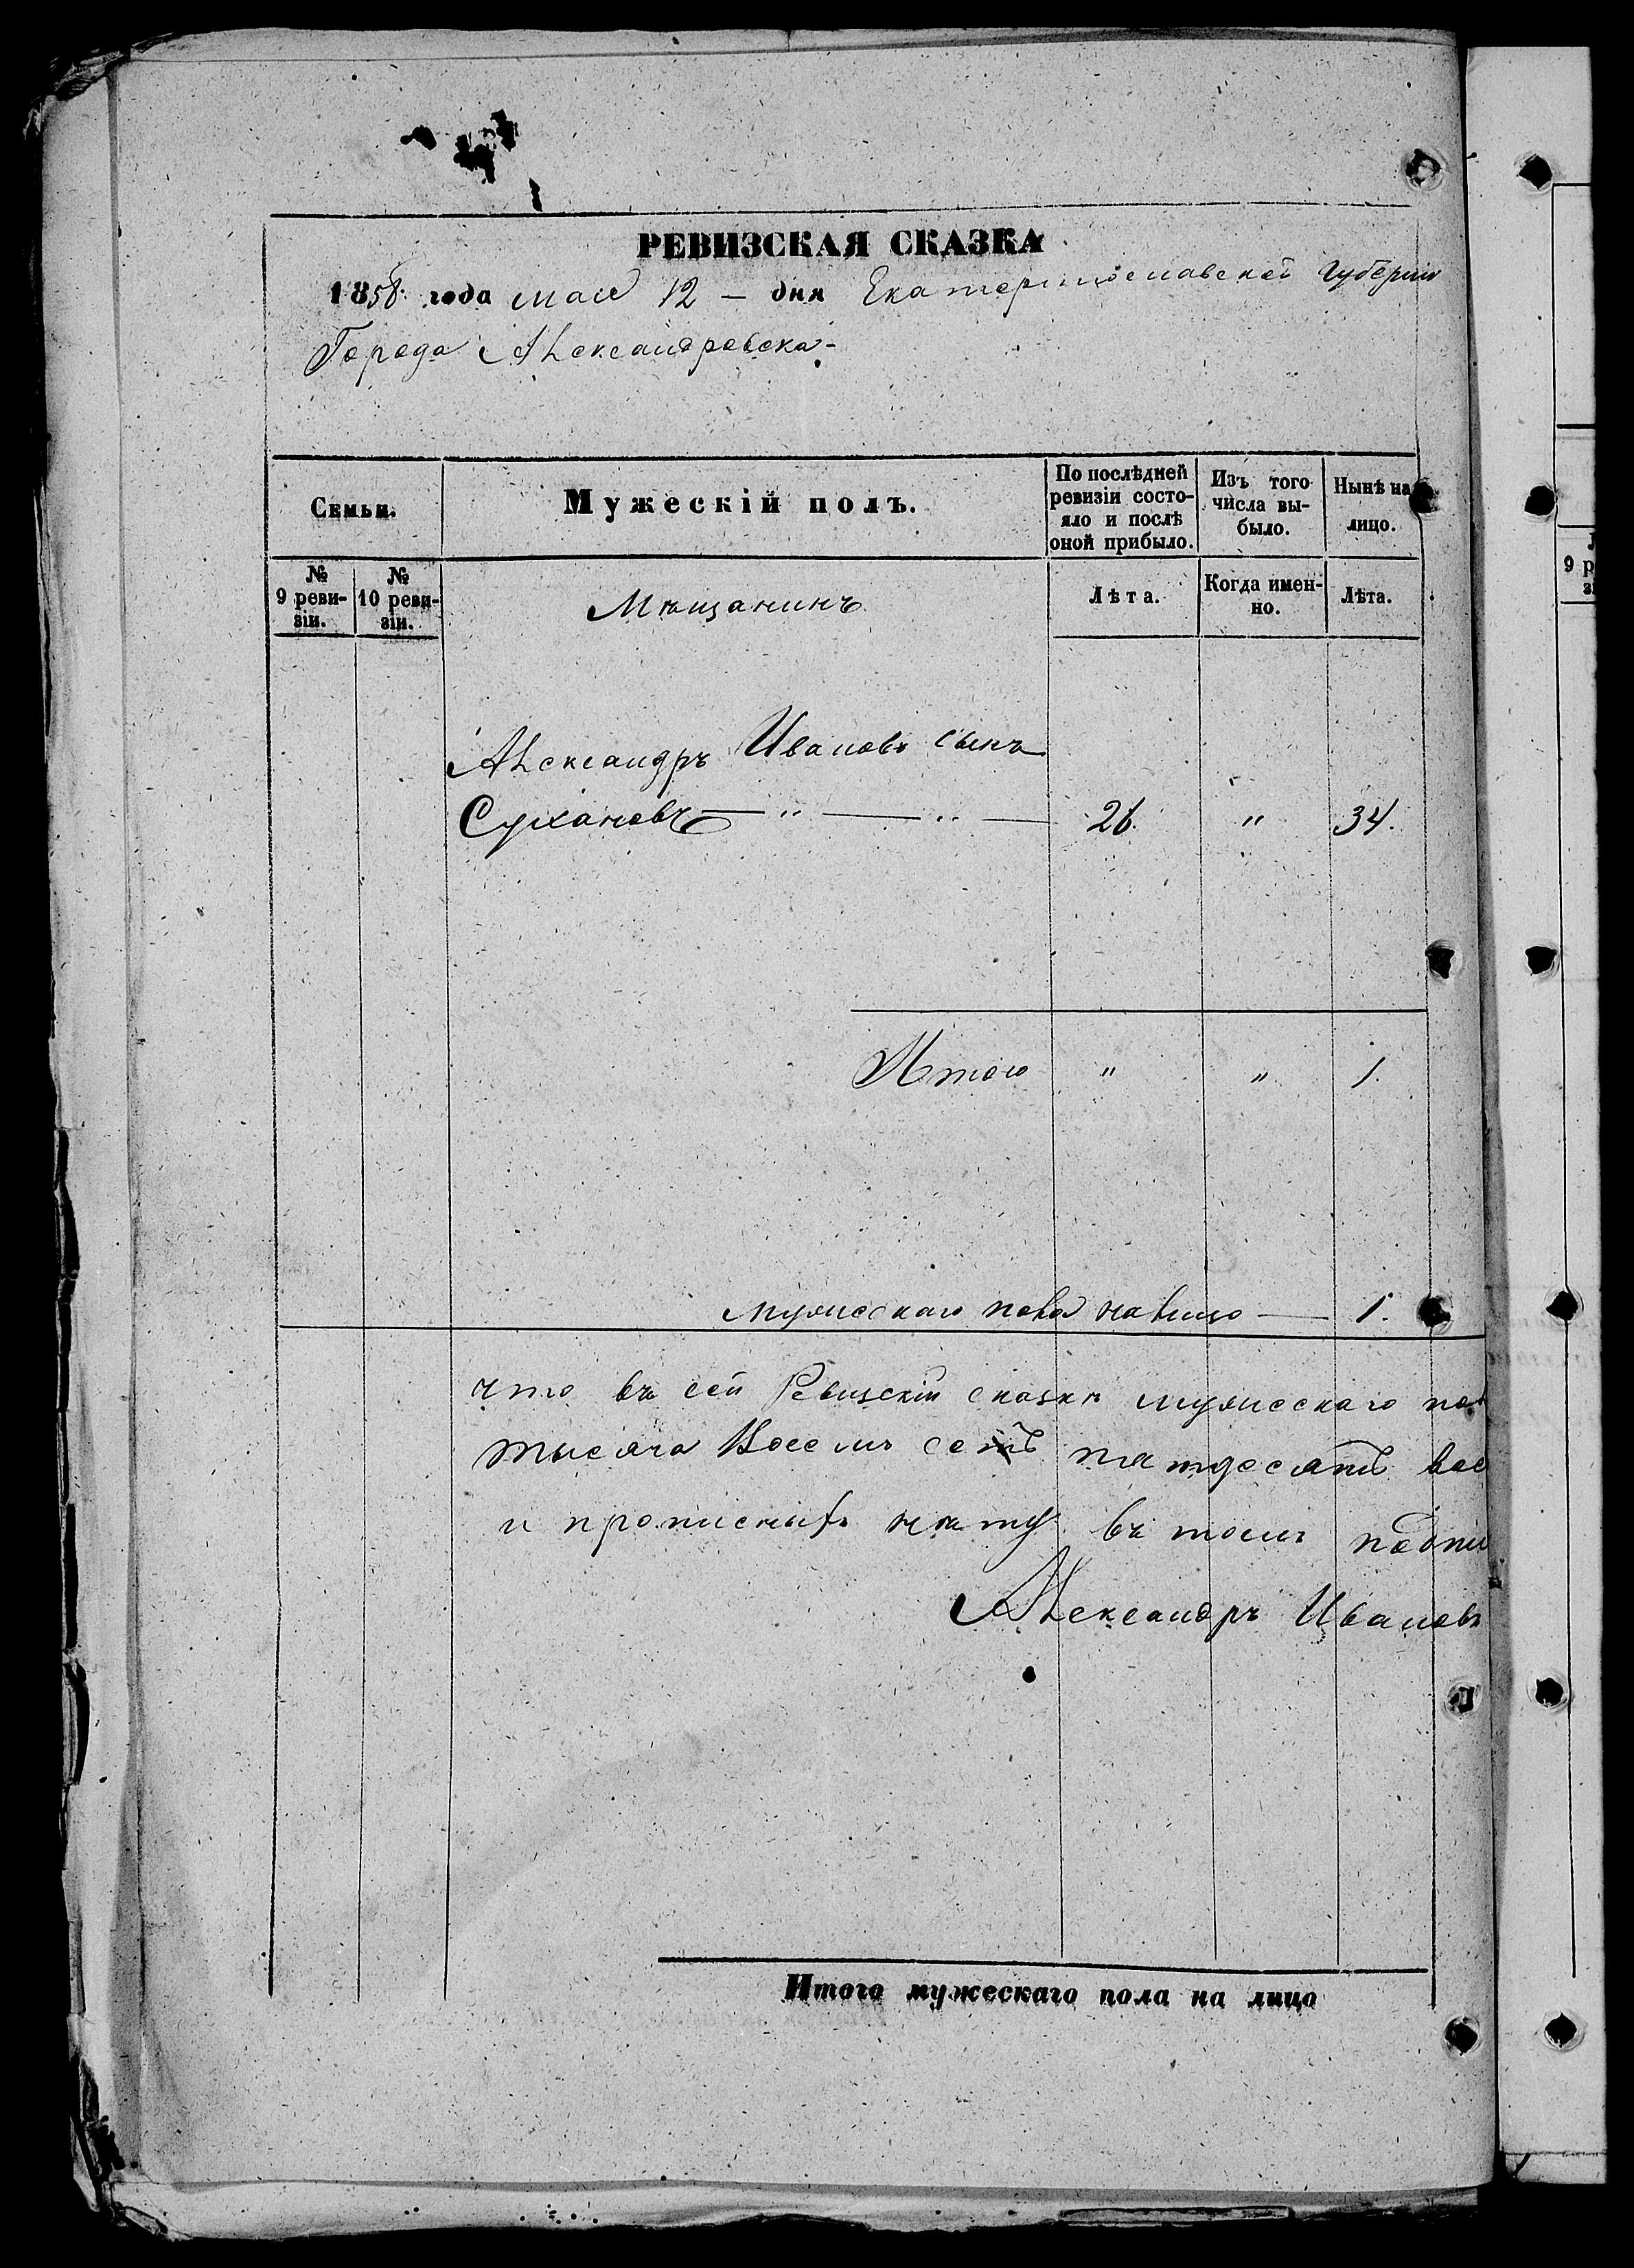 РЕВИЗСКАЯ СКАЗКА
1858 года мая 12 — дня Екатеринославской Губерніи
Города Александровска
Семьи.
Мужескій полъ.
По послѣдней ревизіи состо-
яло и послѣ
оной прибыло.
Изъ того
числа вы-
было.
Нынѣ на
лицо.
№
9 реви-
зіи.
№
10 реви-
зіи.
Мѣщанинъ
Лѣта.
Когда имен-
но.
Лѣта.
Александръ Ивановъ сынъ
Сухановъ — " — " — 26. " 34.
Итого " " 1.
мужескаго пола налицо — 1.
что въ сей Ревизскій сказкѣ мужескаго пол
тысяча Восемь сотъ пятдесятъ вос
и прописныхъ нѣту въ томъ подпи
Александръ Ивановъ
Итого мужескаго пола на лицо
9 р